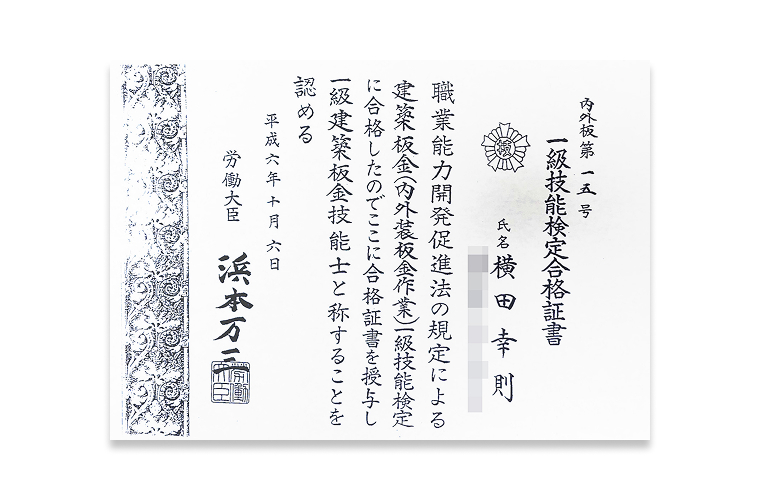 内外板第一五号
一級技能検定合格証書
氏名 横田幸則
職業能力開発促進法の規定による
建築板金(内外装板金作業)一級技能検定
に合格したのでここに合格証書を授与し
一級建築板金技能士と称することを
認める
平成六年十月六日
労働大臣 浜本万三
労働大臣